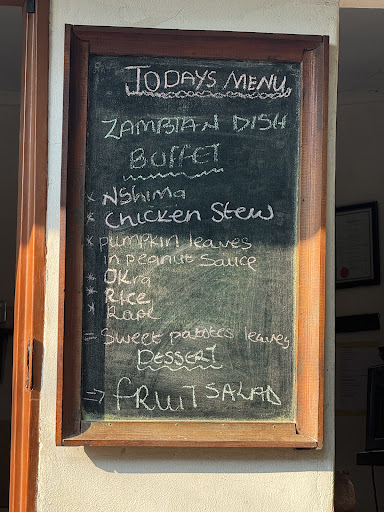 TODAYS MENU
ZAMBIAN DISH
BUFFET
* NShima
* Chicken Stew
* pumpkin leaves
in peanut Sauce
* OKra
* RICE
* Rape
= Sweet patotes leaves
DESSERT
=> FRUIT SALAD